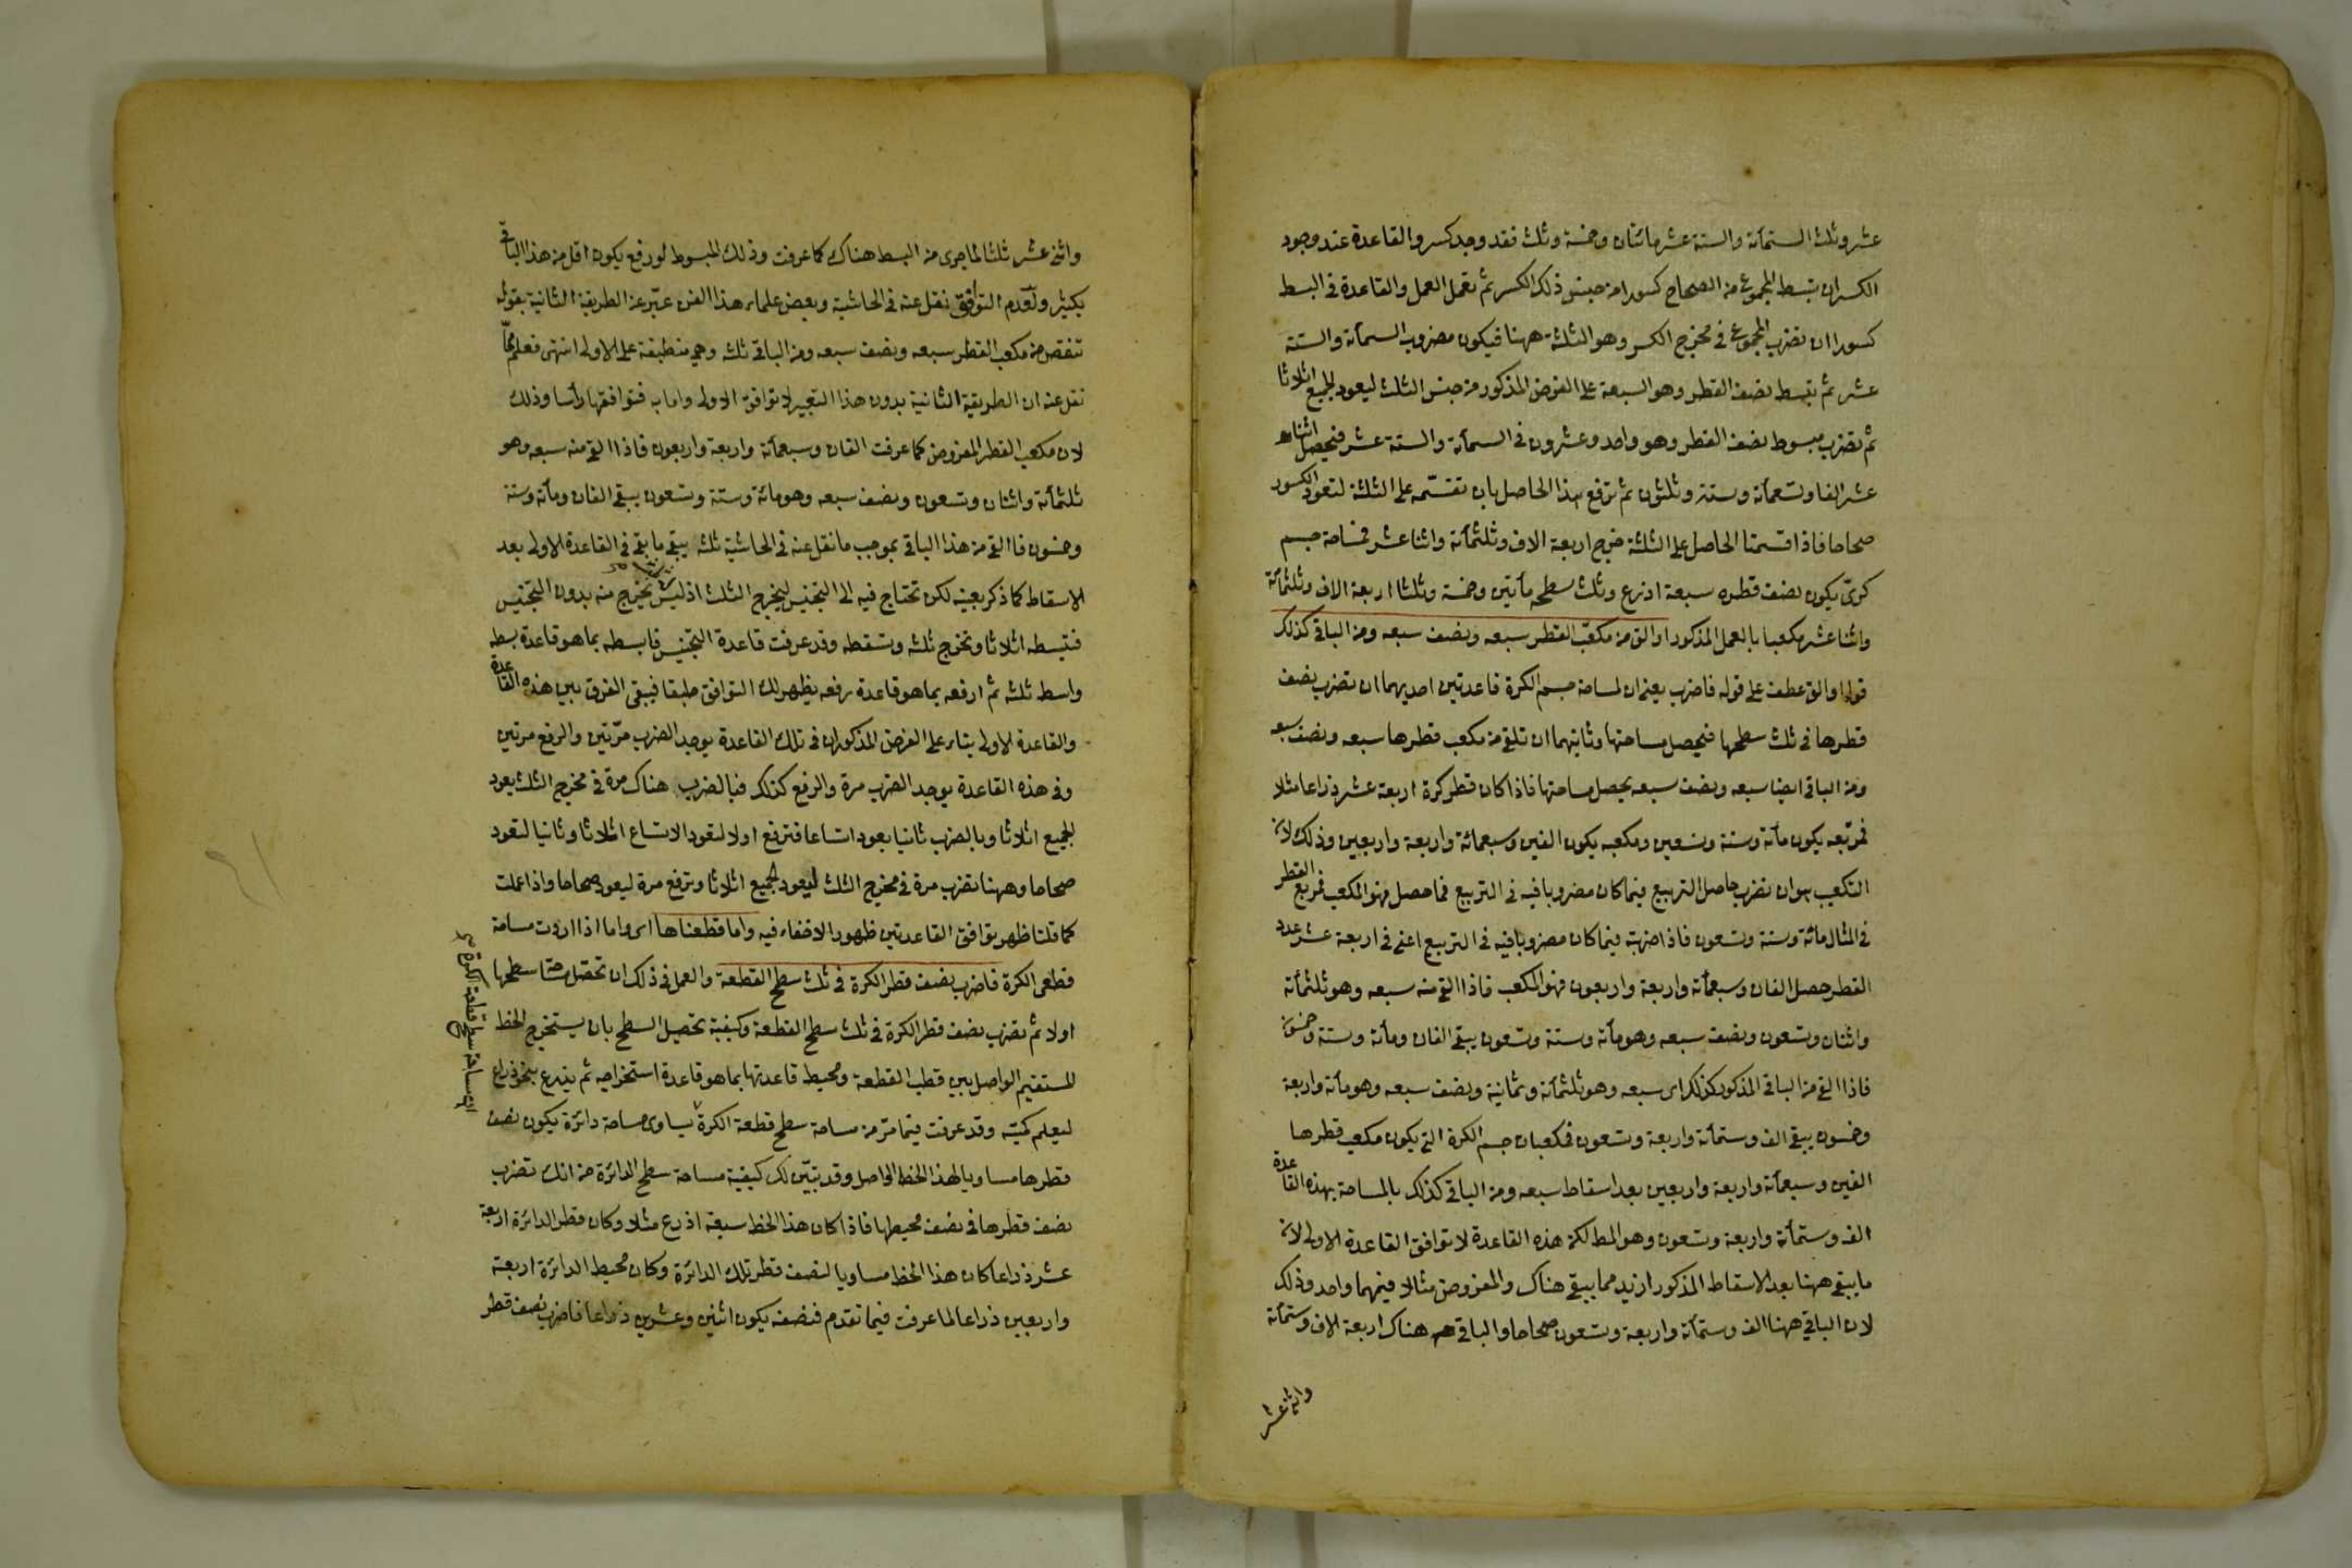 عشر وثلث الستمائة والستة عشر مائتان وخمسة وثلث فقد وجد كسر والقاعدة عند وجود
الكسر ان تبسط المجموع من الصحاح كسورا من جنس ذلك الكسر ثم تعمل العمل والقاعدة في البسط
كسورا ان تضرب المجموع في مخرج الكسر وهو الثلثة ههنا فيكون مضروب الستمائة والستة
عشر ثم تبسط نصف القطر وهو السبعة على الفرض المذكور من جنس الثلث ليعود الجميع اثلاثا
ثم تضرب مبسوط نصف القطر وهو واحد وعشرون في الستمائة والستة عشر فيحصل اثنا
عشر الفا وتسعمائة وستة وثلثون ثم ترفع هذا الحاصل بان تقسمه على الثلثة لتعود الكسور
صحاحا فاذا قسمنا الحاصل على الثلثة خرج اربعة الاف وثلثمائة واثنا عشر فمساحة جسم
كرى يكون نصف قطره سبعة اذرع وثلث سطحه مأتين وخمسة وثلثا اربعة الاف وثلثمائة
واثنا عشر مكعبا بالعمل المذكور او الق من مكعب القطر سبعه ونصف سبعه ومن الباقي كذلك
قوله او الق عطف على قوله فاضرب يعنى ان لمساحة جسم الكرة قاعدتين احديهما ان تضرب نصف
قطرها في ثلث سطحها فيحصل مساحتها وثانيتهما ان تلقى من مكعب قطرها سبعه ونصف سبعه
ومن الباقي ايضا سبعه ونصف سبعه يحصل مساحتها فاذا كان قطر كرة اربعة عشر ذراعا مثلا
فمربعه يكون مائة وستة وتسعين ومكعبه يكون الفين وسبعمائة واربعة واربعين وذلك لان
التكعيب هو ان تضرب حاصل التربيع فيما كان مضروبا فيه في التربيع فما حصل فهو المكعب فمربع القطر
في المثال مائة وستة وتسعون فاذا ضربته فيما كان مضروبا فيه في التربيع اعنى في اربعة عشر عدد
القطر حصل الفان وسبعمائة واربعة واربعون فهو المكعب فاذا القى منه سبعه وهو ثلثمائة
واثنان وتسعون ونصف سبعه وهو مائة وستة وتسعون يبقى الفان ومائة وستة وخمسون
فاذا القى من الباقي المذكور كذلك اى سبعه وهو ثلثمائة وثمانية ونصف سبعه وهو مائة واربعة
وخمسون يبقى الف وستمائة واربعة وتسعون فمكعبان جسم الكرة التى يكون مكعب قطرها
الفين وسبعمائة واربعة واربعين بعد اسقاط سبعه ومن الباقي كذلك بالمساحة بهذه القاعدة
الف وستمائة واربعة وتسعون وهو المط لكن هذه القاعدة لا توافق القاعدة الاولى لان
ما يبقى ههنا بعد الاسقاط المذكور ازيد مما يبقى هناك والمفروض مثالا فيهما واحد وذلك
لان الباقي ههنا الف وستمائة واربعة وتسعون صحاحا والباقي هناك اربعة الاف وستمائة
واثنى عشر
واثنى عشر ثلثا لما جرى من البسط هناك كما عرفت وذلك المبسوط لو رفع يكون اقل من هذا الباقي
بكثير ولعدم التوافق نقل عنه في الحاشية وبعض علماء هذا الفن عبر عن الطريقة الثانية بقوله
تنقص من مكعب القطر سبعه ونصف سبعه ومن الباقي ثلثه وهى منطبقة على الاولى انتهى فعلم مما
نقل عنه ان الطريقة الثانية بدون هذا التعبير لا توافق الاولى واما به فتوافقها رأسا وذلك
لان مكعب القطر المفروض كما عرفت الفان وسبعمائة واربعة واربعون فاذا القى منه سبعه وهو
ثلثمائة واثنان وتسعون ونصف سبعه وهو مائة وستة وتسعون يبقى الفان ومائة وستة
وخمسون فالقى من هذا الباقي بموجب ما نقل عنه في الحاشية ثلثه يبقى ما بقى في القاعدة الاولى بعد
الاسقاط كما ذكر بعينه لكن تحتاج فيه الى التجنيس ليخرج الثلث اذ ليس يخرج منه بدون التجنيس
فتبسطه اثلاثا وتخرج ثلثه وتسقطه وقد عرفت قاعدة التجنيس فابسطه بما هو قاعدة بسطه
واسقط ثلثه ثم ارفعه بما هو قاعدة رفعه يظهر لك التوافق طبقا فيبقى الفرق بين هذه القاعدة
والقاعدة الاولى بناء على الفرض المذكور ان في تلك القاعدة يوجد الضرب مرتين والرفع مرتين
وفي هذه القاعدة يوجد الضرب مرة والرفع كذلك فبالضرب هناك مرة في مخرج الثلث يعود
الجميع اثلاثا وبالضرب ثانيا يعود اتساعا فترفع اولا لتعود الاتساع اثلاثا وثانيا لتعود
صحاحا وههنا تضرب مرة في مخرج الثلث ليعود الجميع اثلاثا وترفع مرة ليعود صحاحا واذا عملت
كما قلنا ظهر توافق القاعدتين ظهورا لا خفاء فيه واما قطعتاها اى واما اذا اردت مساحة
قطعتى الكرة فاضرب نصف قطر الكرة في ثلث سطح القطعة والعمل في ذلك ان تحصل مساحة سطحها
اولا ثم تضرب نصف قطر الكرة في ثلث سطح القطعة وكيفية تحصيل السطح بان يستخرج الخط
المستقيم الواصل بين قطب القطعة ومحيط قاعدتها بما هو قاعدة استخراجه ثم يذرع بنحو ذراع
ليعلم كميته وقد عرفت فيما مر من مساحة سطح قطعة الكرة يساوى مساحة دائرة يكون نصف
قطرها مساويا لهذا الخط الواصل وقد تبين لك كيفية مساحة سطح الدائرة من انك تضرب
نصف قطرها في نصف محيطها فاذا كان هذا الخط سبعة اذرع مثلا وكان قطر الدائرة اربعة
عشر ذراعا كان هذا الخط مساويا لنصف قطر تلك الدائرة وكان محيط الدائرة اربعة
واربعين ذراعا لما عرفت فيما تقدم فنصفه يكون اثنين وعشرين ذراعا فاضرب نصف قطر
مساحة سطح قطعة الكرة